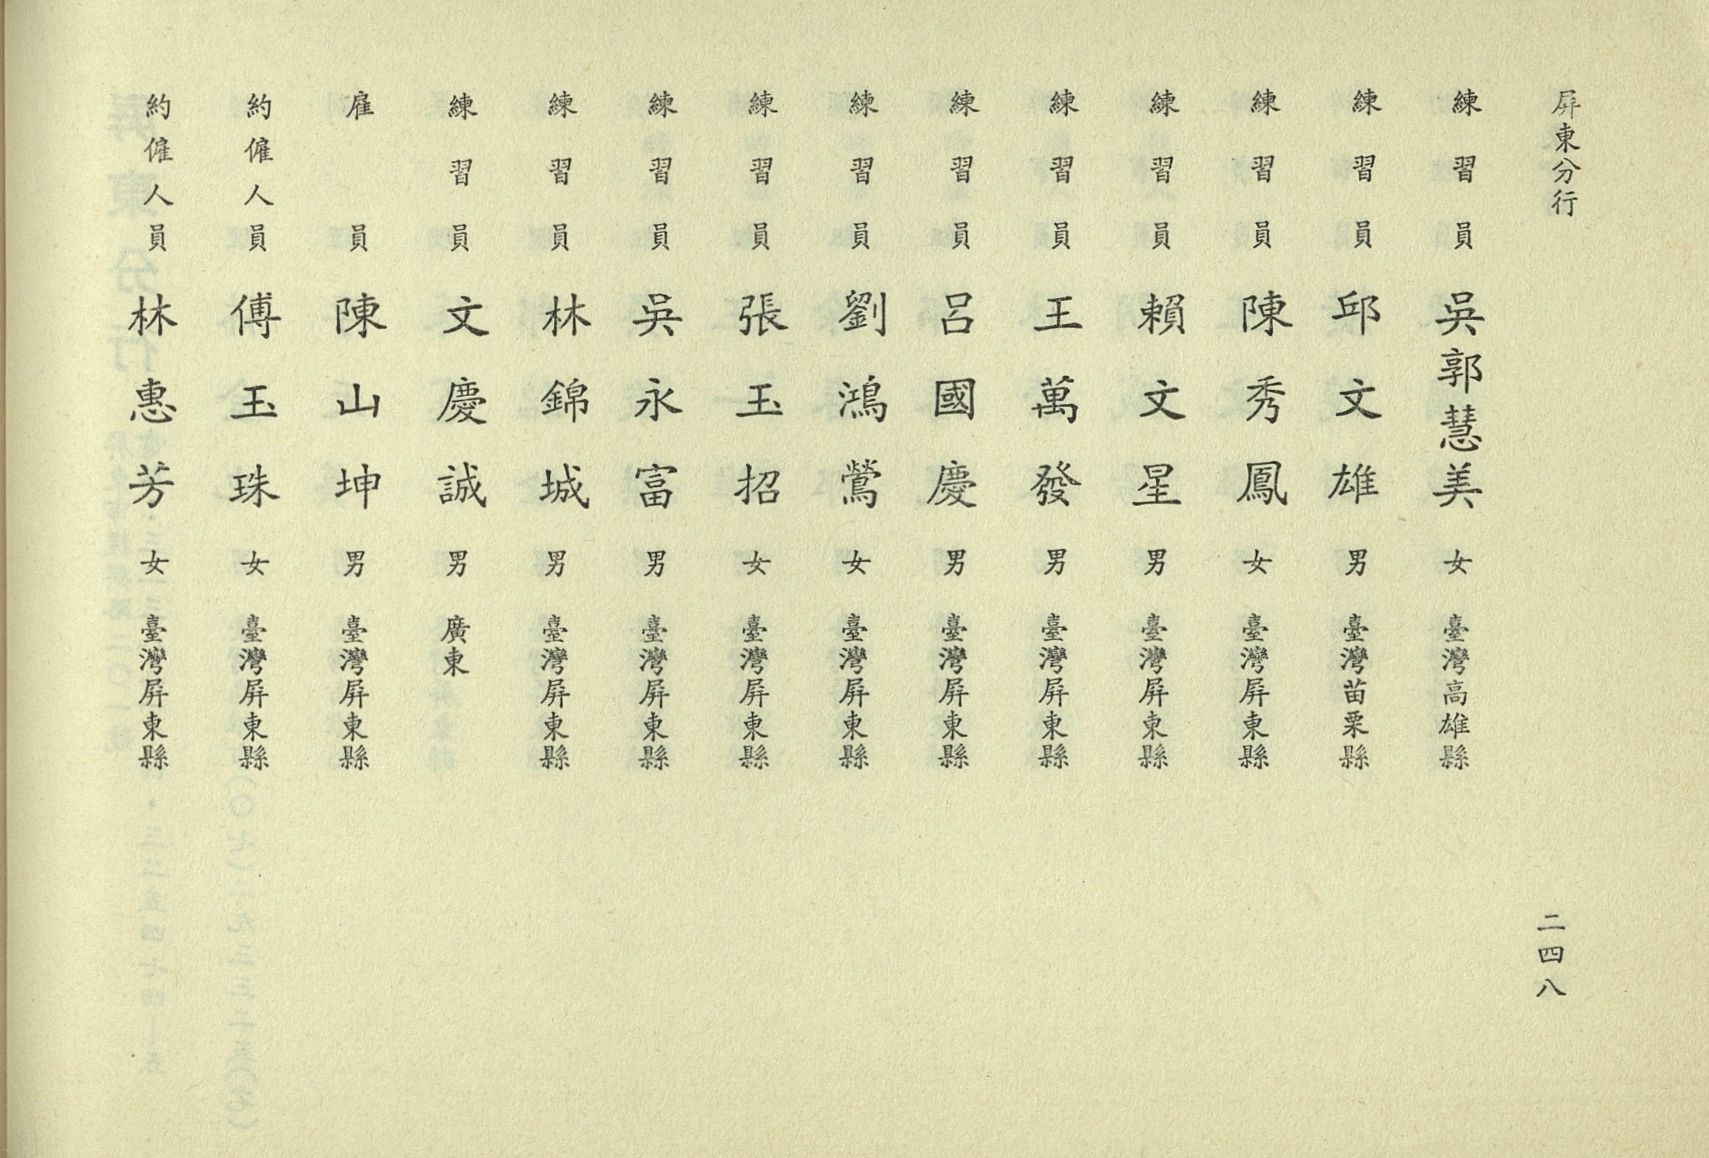 屏東分行
二四八
練習員 吳郭慧美 女 臺灣高雄縣
練習員 邱文雄 男 臺灣苗栗縣
練習員 陳秀鳳 女 臺灣屏東縣
練習員 賴文星 男 臺灣屏東縣
練習員 王萬發 男 臺灣屏東縣
練習員 呂國慶 男 臺灣屏東縣
練習員 劉鴻鶯 女 臺灣屏東縣
練習員 張玉招 女 臺灣屏東縣
練習員 吳永富 男 臺灣屏東縣
練習員 林錦城 男 臺灣屏東縣
練習員 文慶誠 男 廣東
雇員 陳山坤 男 臺灣屏東縣
約僱人員 傅玉珠 女 臺灣屏東縣
約僱人員 林惠芳 女 臺灣屏東縣